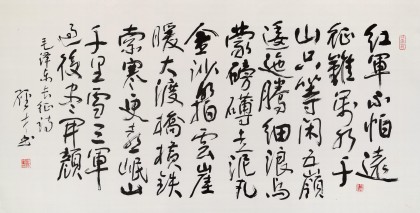 紅軍不怕遠
征難萬水千
山只等闲五嶺
逶迤騰細浪烏
蒙磅礴走泥丸
金沙水拍雲崖
暖大渡橋橫铁
索寒更喜岷山
千里雪三軍
過後尽開顔
毛泽东长征詩
书